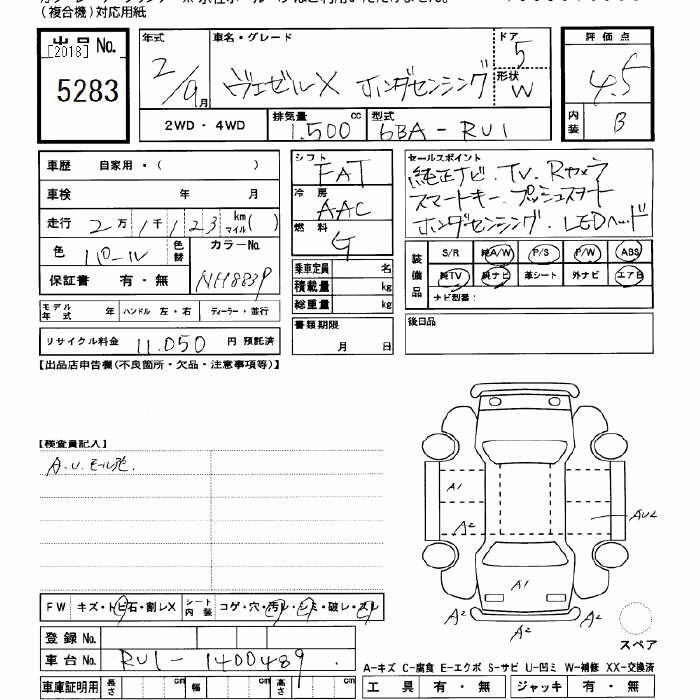 (複合機)対応用紙
出品 No.
[2018]
5283
年式
2/9月
車名・グレード
ヴェゼルX ホンダセンシング
ドア
5
形状
W
評価点
4.5
内装
B
2WD・4WD
排気量
1.500 cc
型式
6BA-RU1
車歴 自家用・( )
車検 年 月
走行 2万1千123 kmマイル( )
色 パール 色替
カラーNo.
NH883P
保証書 有・無
モデル年式 年 ハンドル 左・右 ディーラー・並行
リサイクル料金 11.050 円 預託済
シフト
FAT
冷房
AAC
燃料
G
乗車定員 名
積載量 kg
総重量 kg
書類期限
月 日
セールスポイント
純正ナビ.TV.Rカメラ
スマートキー.プッシュスタート
ホンダセンシング.LEDヘッド
装備品
S/R 純A/W P/S P/W ABS
純TV 純ナビ 革シート 外ナビ エアB
ナビ型番:
後日品
【出品店申告欄(不良箇所・欠品・注意事項等)】
【検査員記入】
A.U.モール泡.
A1
A2
AU2
A1
A2 A2 A2
スペア
FW キズ・トビ石・割レX シート内装 コゲ・穴・汚レ・シミ・破レ・スレ
登録 No.
車台 No. RU1-1400489.
A-キズ C-腐食 E-エクボ S-サビ U-凹ミ W-補修 XX-交換済
車庫証明用 長さ cm 幅 cm 高さ cm
工具 有・無 ジャッキ 有・無